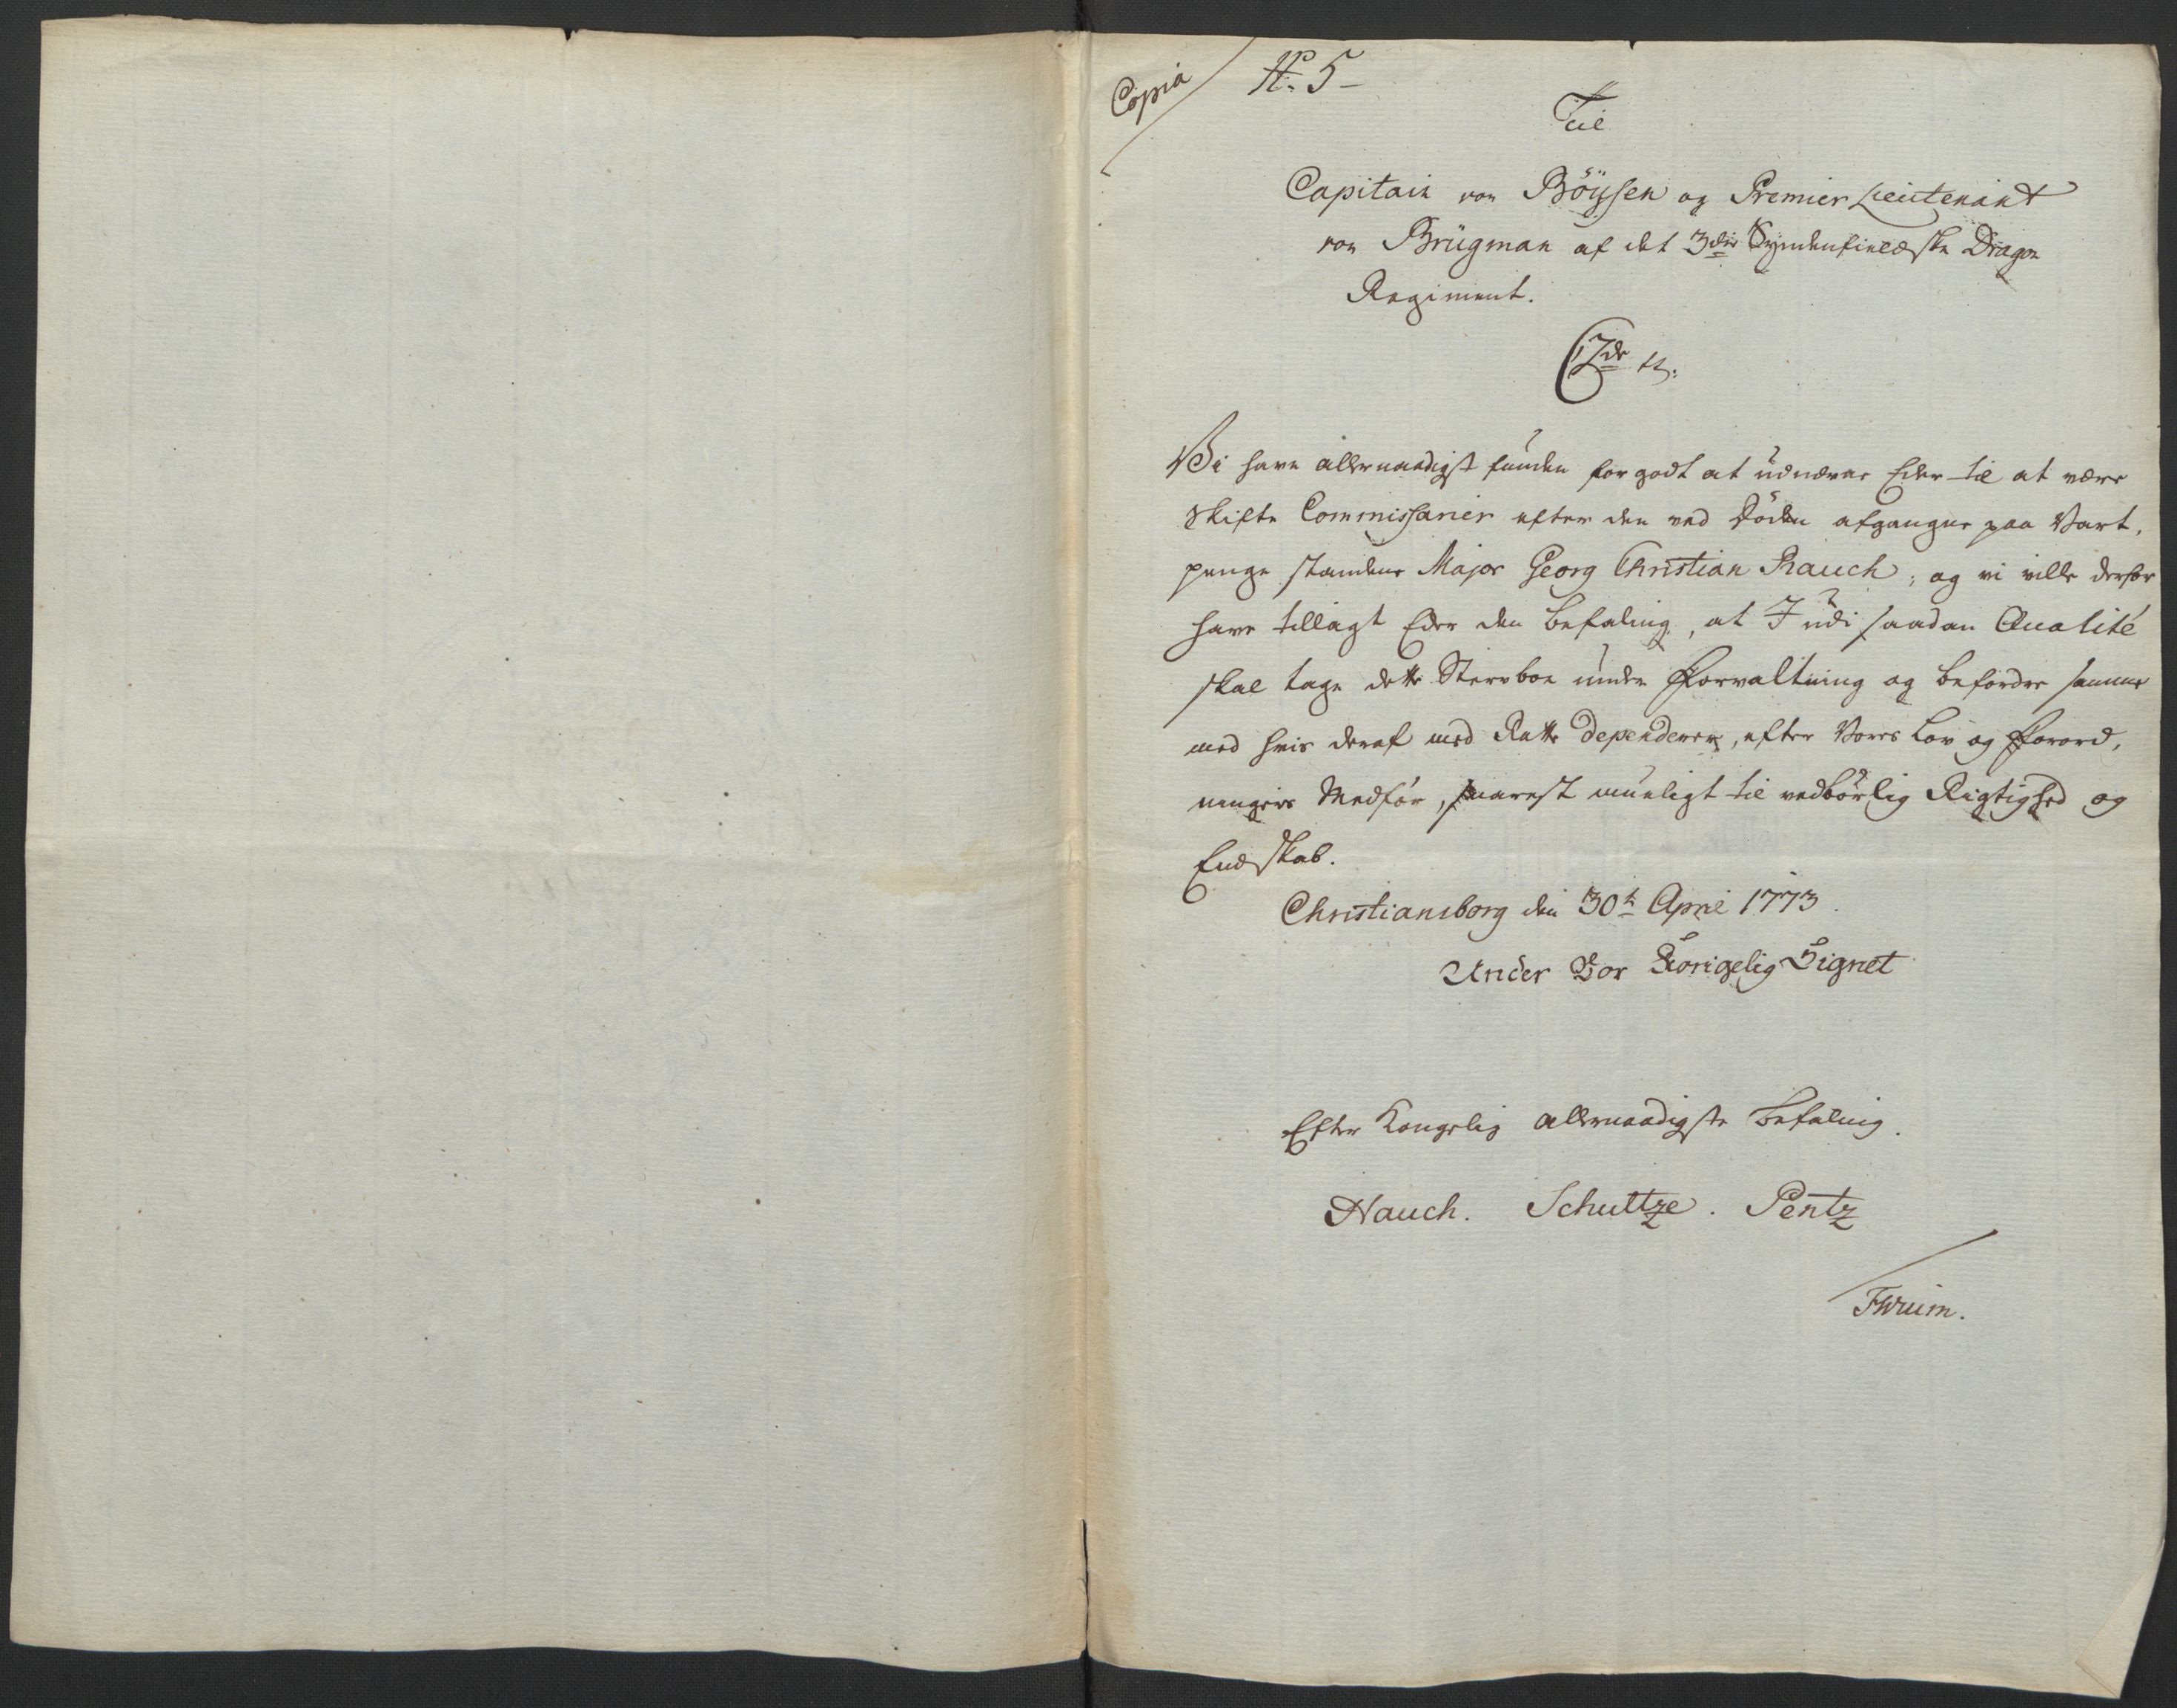 Copia
No. 5
Til
Capitain von Böÿsen og Premier Lieutenant
von Brügman af det 3die Syndenfieldske Dragon
Regiment.
C 7de R.
Vi have allernaadigst funden for godt at udnævne Eder til at være
Skifte Commissarier efter den ved Döden afgangne paa Vart,
penge standene Major Georg Christian Rauch; og vi ville derfor
have tillagt Eder den befaling, at I udi saadan Qualité
skal tage dette Stervboe under Forvaltning og befordre samme
med hvis deraf med Rette dependerer, efter Vores Lov og Forord,
ningers Medför, snarest mueligt til vedbörlig Rigtighed og
Endskab.
Christiansborg den 30t April 1773.
Under Vor Kongelig Signet
Efter Kongelig allernaadigste befaling.
Hauch. Schultze. Pentz